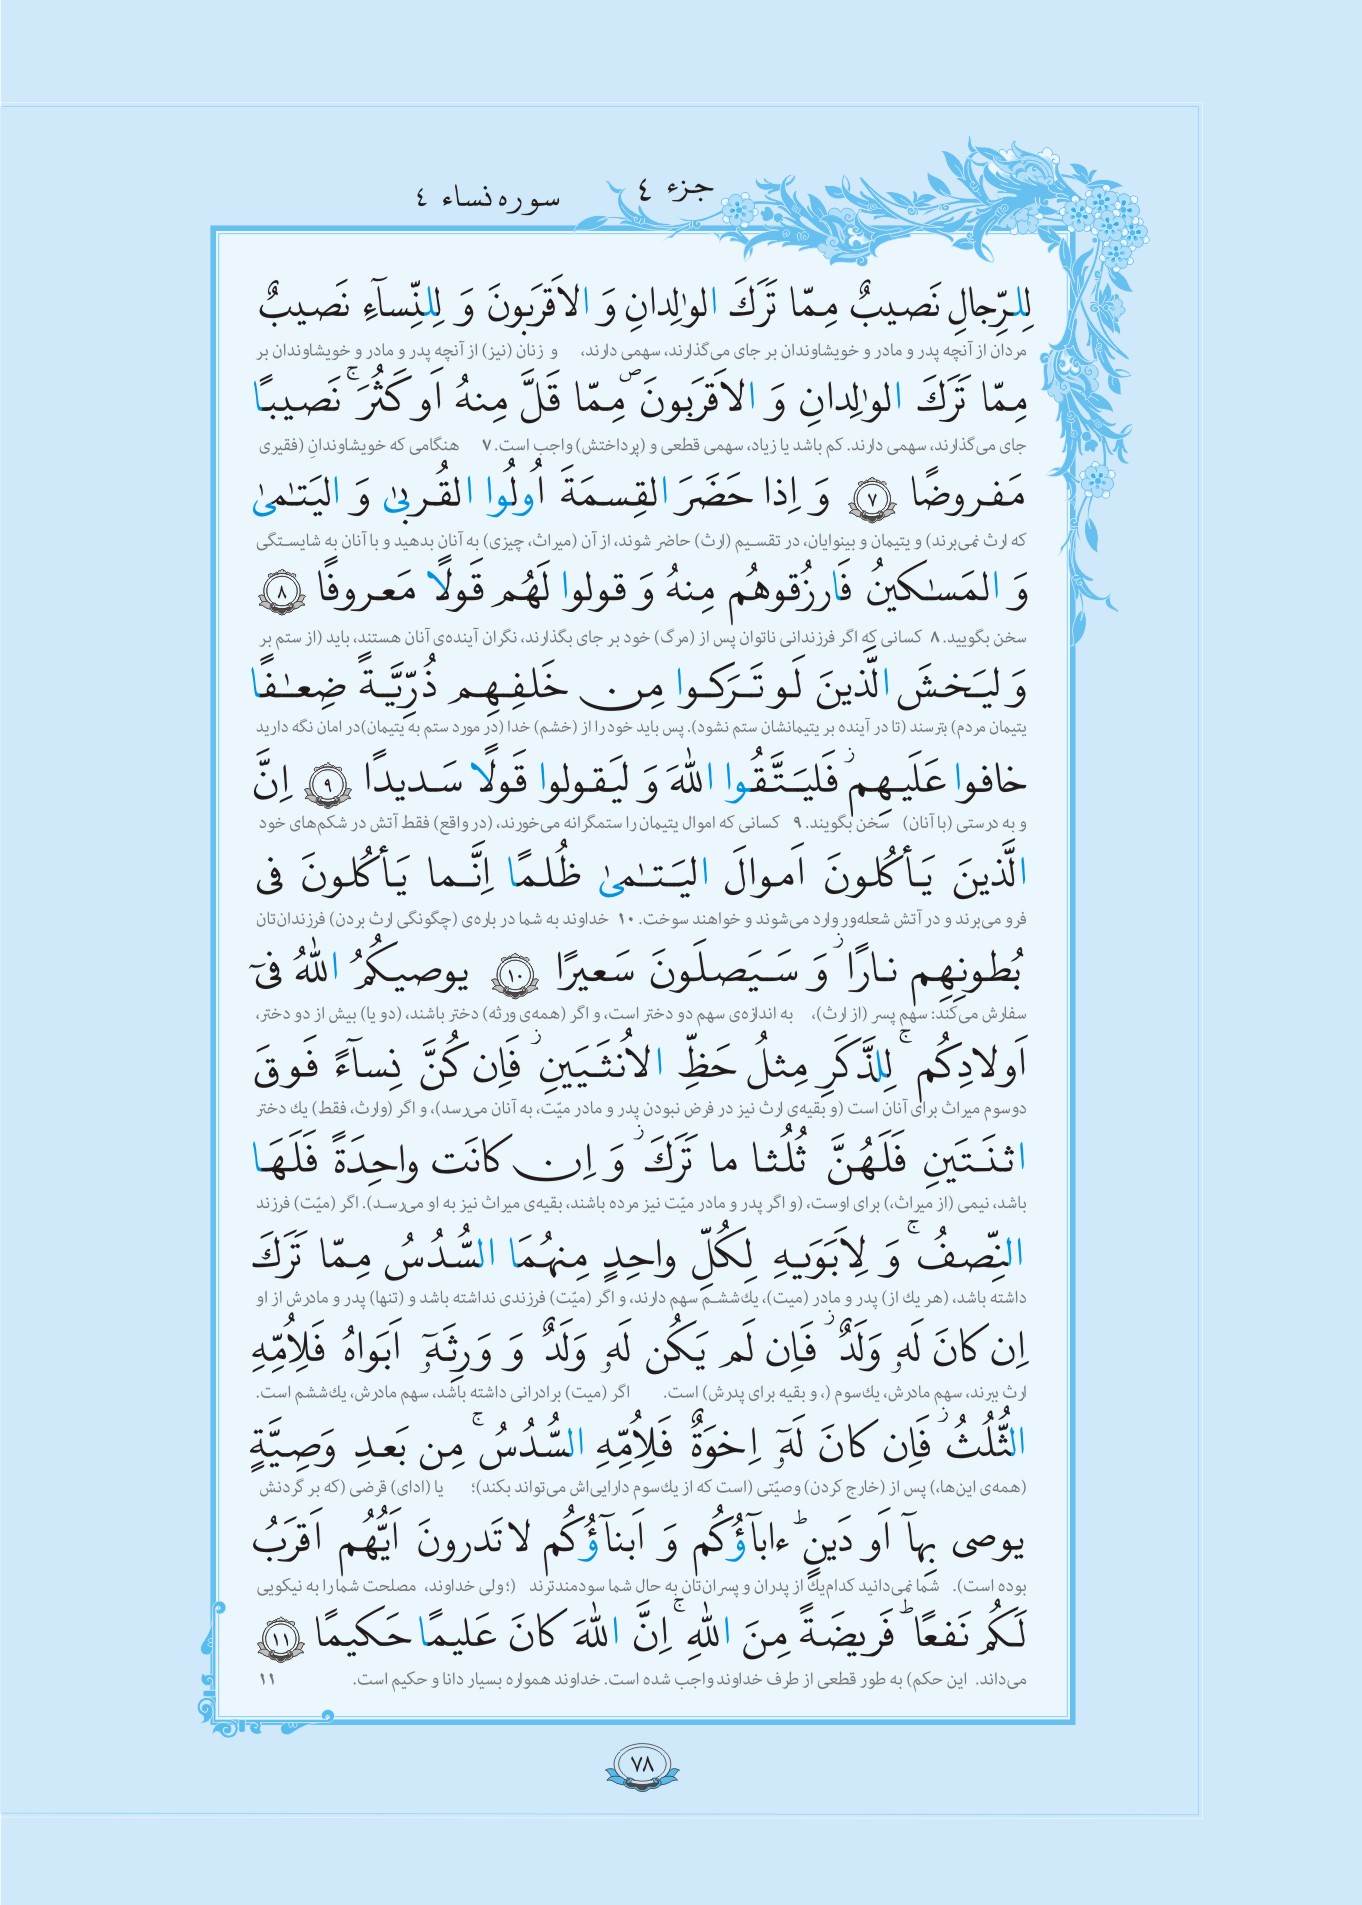 جزء ٤
سوره نساء ٤
لِلرِّجالِ نَصیبٌ مِمّا تَرَكَ الوٰلِدانِ وَ الاَقرَبونَ وَ لِلنِّسآءِ نَصیبٌ
مردان از آنچه پدر و مادر و خویشاوندان بر جای می‌گذارند، سهمی دارند، و زنان (نیز) از آنچه پدر و مادر و خویشاوندان بر
مِمّا تَرَكَ الوٰلِدانِ وَ الاَقرَبونَ ۖ مِمّا قَلَّ مِنهُ اَو كَثُرَ ۚ نَصیبًا
جای می‌گذارند، سهمی دارند. کم باشد یا زیاد، سهمی قطعی و (پرداختش) واجب است. ۷ هنگامی که خویشاوندانِ (فقیری
مَفروضًا ﴿۷﴾ وَ اِذا حَضَرَ القِسمَةَ اُولُوا القُربیٰ وَ الیَتٰمیٰ
که ارث نمی‌برند) و یتیمان و بینوایان، در تقسیم (ارث) حاضر شوند، از آن (میراث، چیزی) به آنان بدهید و با آنان به شایستگی
وَ المَسٰكینُ فَارزُقوهُم مِنهُ وَ قولوا لَهُم قَولًا مَعروفًا ﴿۸﴾
سخن بگویید. ۸ کسانی که اگر فرزندانی ناتوان پس از (مرگ) خود بر جای بگذارند، نگران آینده‌ی آنان هستند، باید (از ستم بر
وَ لیَخشَ الَّذینَ لَو تَرَكوا مِن خَلفِهِم ذُرِّیَّةً ضِعٰفًا
یتیمان مردم) بترسند (تا در آینده بر یتیمانشان ستم نشود). پس باید خود را از (خشم) خدا (در مورد ستم به یتیمان)در امان نگه دارید
خافوا عَلَیهِم ۫ فَلیَتَّقُوا اللّٰهَ وَ لیَقولوا قَولًا سَدیدًا ﴿۹﴾ اِنَّ
و به درستی (با آنان) سخن بگویند. ۹ کسانی که اموال یتیمان را ستمگرانه می‌خورند، (در واقع) فقط آتش در شکم‌های خود
الَّذینَ یَأكُلونَ اَموالَ الیَتٰمیٰ ظُلمًا اِنَّما یَأكُلونَ فی
فرو می‌برند و در آتش شعله‌ور وارد می‌شوند و خواهند سوخت. ۱۰ خداوند به شما در باره‌ی (چگونگی ارث بردن) فرزندان‌تان
بُطونِهِم نارًا ز وَ سَیَصلَونَ سَعیرًا ﴿۱۰﴾ یوصیكُمُ اللّٰهُ فیٓ
سفارش می‌کند: سهم پسر (از ارث)، به اندازه‌ی سهم دو دختر است، و اگر (همه‌ی ورثه) دختر باشند، (دو یا) بیش از دو دختر،
اَولادِكُم ۚ لِلذَّكَرِ مِثلُ حَظِّ الاُنثَیَینِ ز فَاِن كُنَّ نِسآءً فَوقَ
دوسوم میراث برای آنان است (و بقیه‌ی ارث نیز در فرض نبودن پدر و مادر میّت، به آنان می‌رسد)، و اگر (وارث، فقط) یك دختر
اثنَتَینِ فَلَهُنَّ ثُلُثا ما تَرَكَ ز وَ اِن كانَت واحِدَةً فَلَهَا
باشد، نیمی (از میراث،) برای اوست، (و اگر پدر و مادر میّت نیز مرده باشند، بقیه‌ی میراث نیز به او می‌رسد). اگر (میّت) فرزند
النِّصفُ ۚ وَ لِاَبَوَیهِ لِكُلِّ واحِدٍ مِنهُمَا السُّدُسُ مِمّا تَرَكَ
داشته باشد، (هر یك از) پدر و مادر (میت)، یك‌ششم سهم دارند، و اگر (میّت) فرزندی نداشته باشد و (تنها) پدر و مادرش از او
اِن كانَ لَهٗ وَلَدٌ ز فَاِن لَم یَكُن لَهٗ وَلَدٌ وَ وَرِثَهٗٓ اَبَواهُ فَلِاُمِّهِ
ارث ببرند، سهم مادرش، یك‌سوم (، و بقیه برای پدرش) است. اگر (میت) برادرانی داشته باشد، سهم مادرش، یك‌ششم است.
الثُّلُثُ ز فَاِن كانَ لَهٗٓ اِخوَةٌ فَلِاُمِّهِ السُّدُسُ ۚ مِن بَعدِ وَصِیَّةٍ
(همه‌ی این‌ها،) پس از (خارج کردن) وصیّتی (است که از یك‌سوم دارایی‌اش می‌تواند بکند)؛ یا (ادای) قرضی (که بر گردنش
یوصی بِهآ اَو دَینٍ ؕ ءابآؤُكُم وَ اَبنآؤُكُم لا تَدرونَ اَیُّهُم اَقرَبُ
بوده است). شما نمی‌دانید کدام‌یك از پدران و پسران‌تان به حال شما سودمندترند (؛ ولی خداوند، مصلحت شما را به نیکویی
لَكُم نَفعًا ؕ فَریضَةً مِنَ اللّٰهِ ۚ اِنَّ اللّٰهَ كانَ عَلیمًا حَكیمًا ﴿۱۱﴾
می‌داند. این حکم) به طور قطعی از طرف خداوند واجب شده است. خداوند همواره بسیار دانا و حکیم است. ۱۱
۷۸